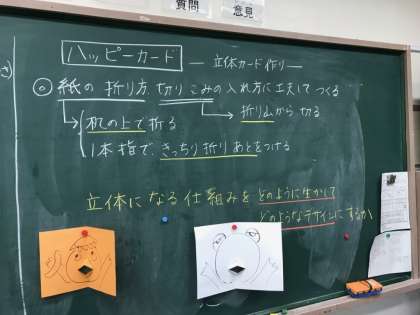 質問
意見
ハッピーカード ―立体カード作り―
◎ 紙の折り方、切りこみの入れ方に工夫して つくる
机の上で折る
折り山から切る
1本指で、きっちり折りあとをつける
立体になる仕組みをどのように生かして
どのようなデザインにするか